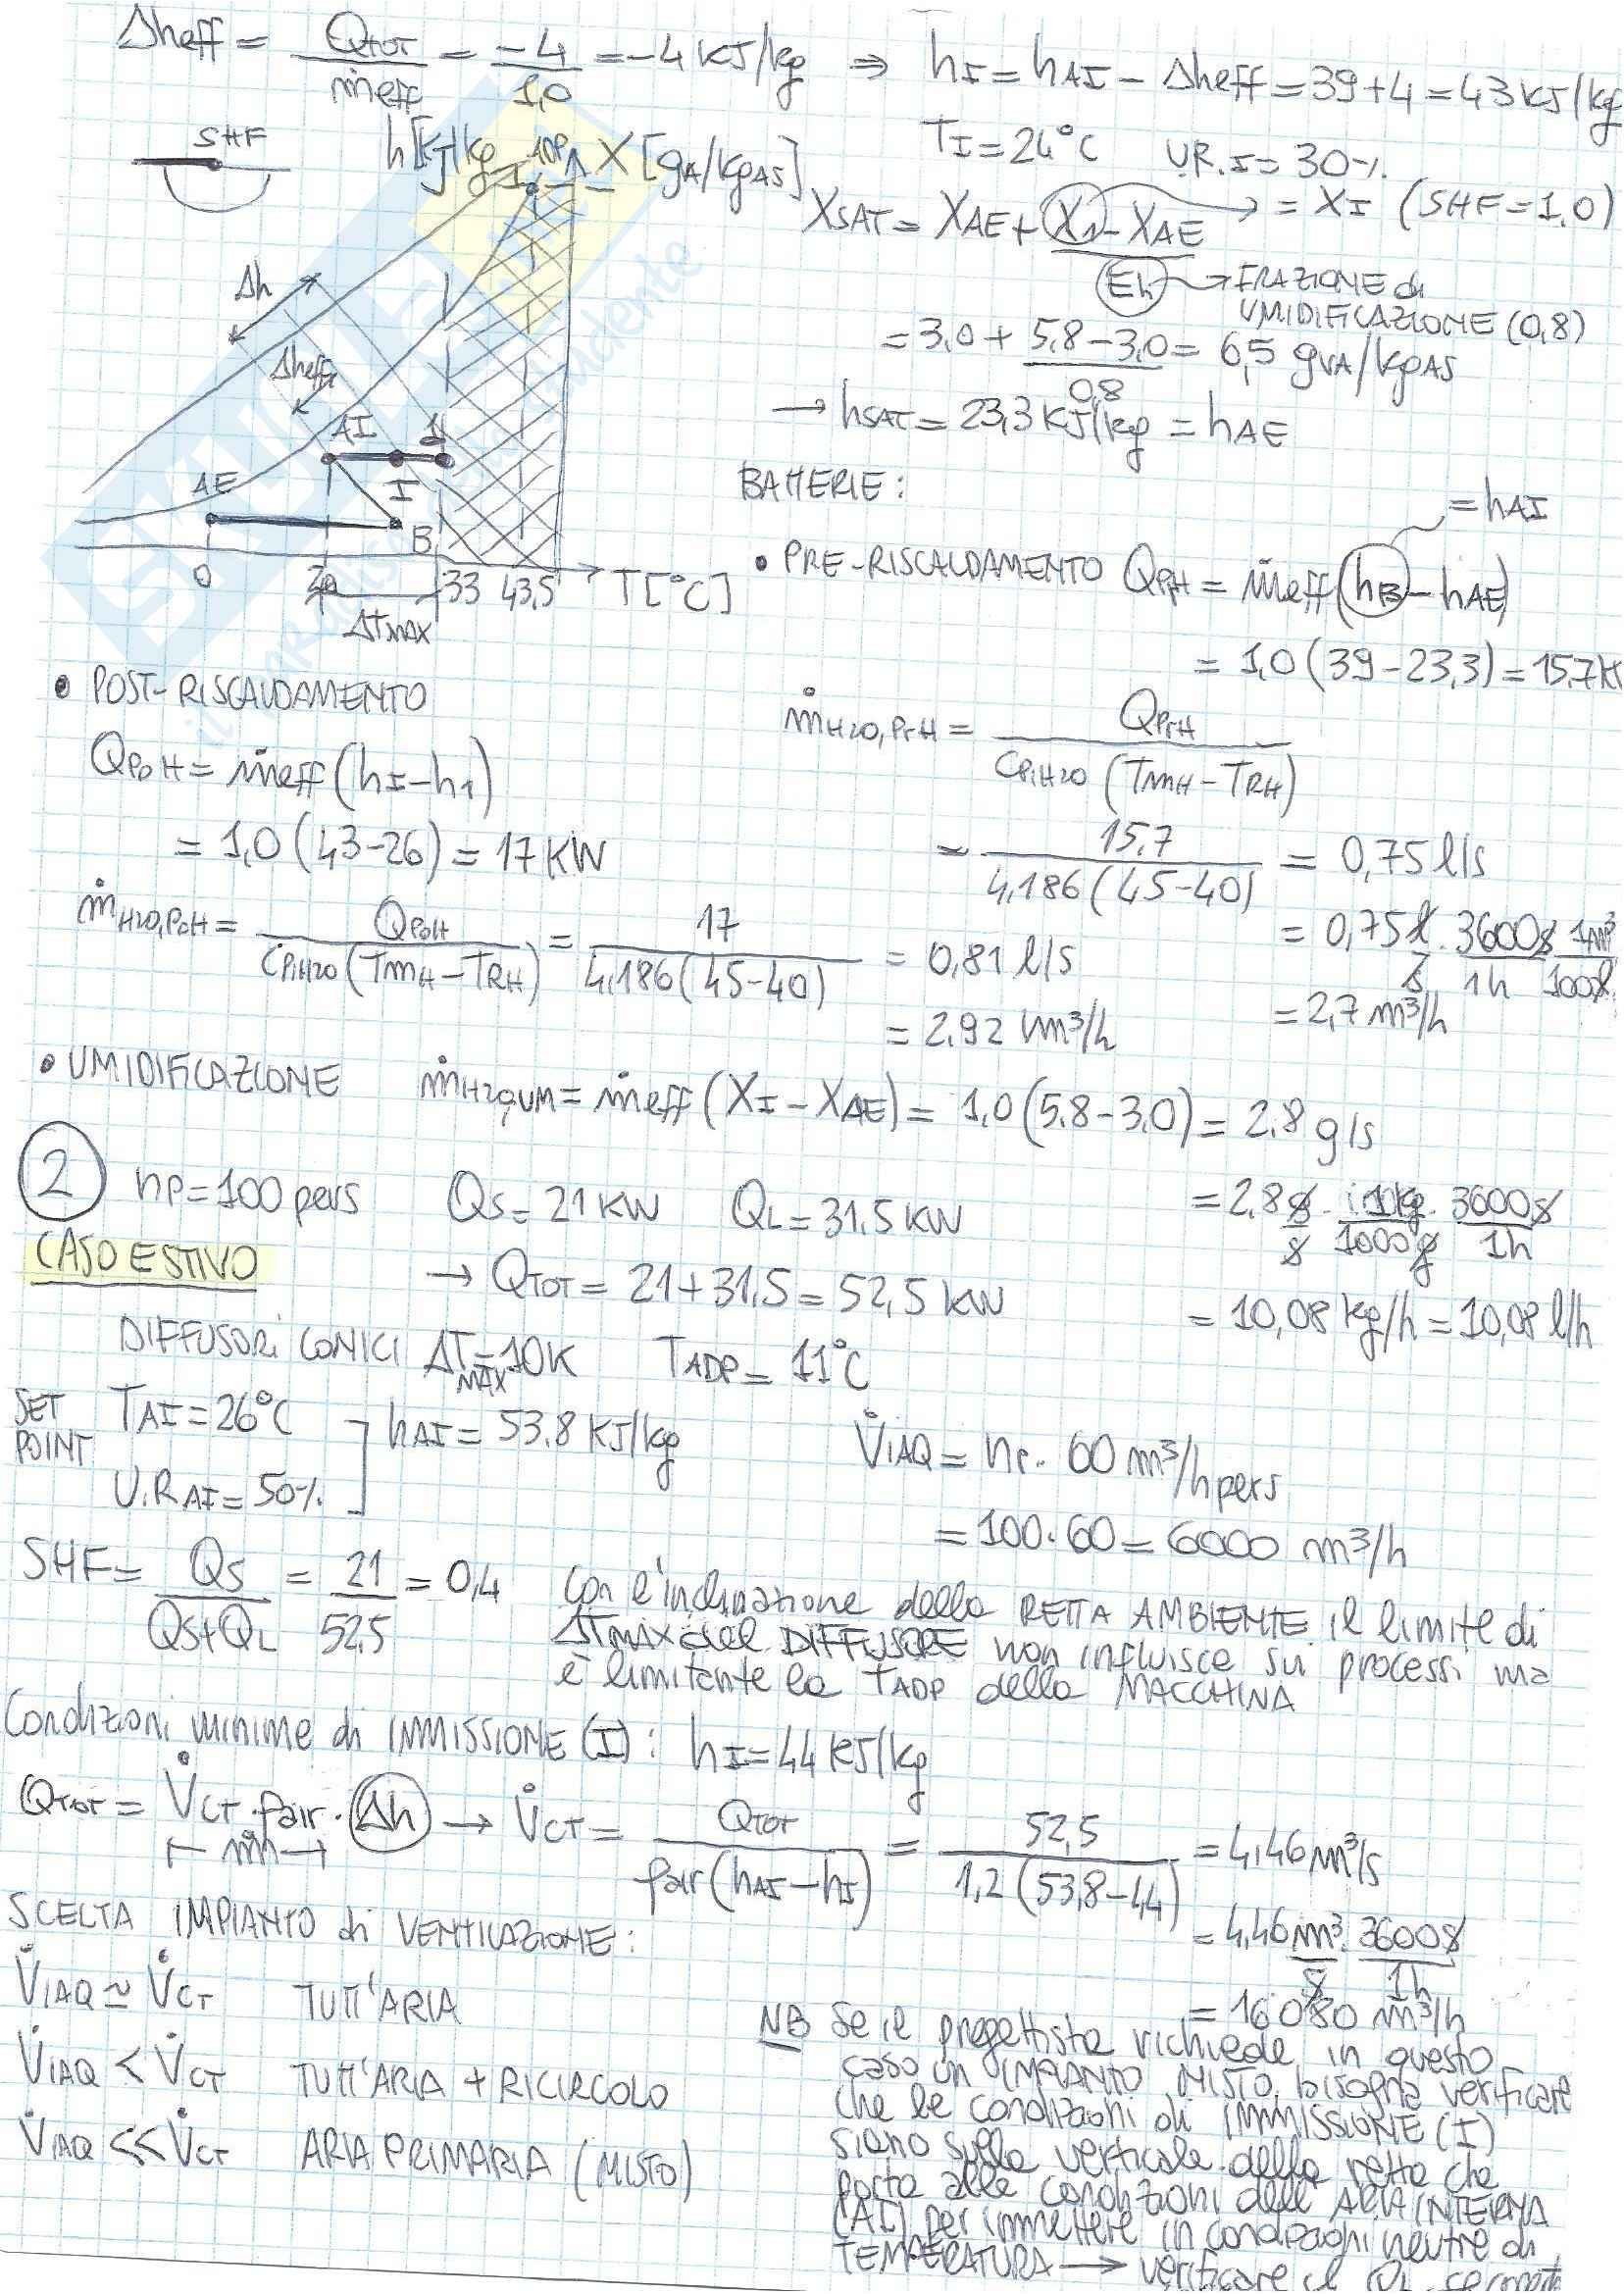 Δheff = Qtot / ṁeff = -4 / 1,0 = -4 KJ/kg ⇒ hI = hAI - Δheff = 39+4 = 43 KJ/kg
SHF
h[KJ/kg] X [gA/kgAS]
TI = 24°C U.R.I = 30%
XSAT = XAE + (X1 - XAE) / Eh → = XI (SHF = 1,0)
Eh → FRAZIONE di UMIDIFICAZIONE (0,8)
= 3,0 + (5,8 - 3,0) / 0,8 = 6,5 gVA/kgAS
→ hSAT = 23,3 KJ/kg = hAE
Δh
Δheff
AI
AE
I
B
0 20 33 43,5 T[°C]
ΔTMAX
BATTERIE:
• PRE-RISCALDAMENTO QPrH = ṁeff (hB - hAE)
= hAI
= 1,0 (39 - 23,3) = 15,7 K
ṁH2O,PrH = QPrH / CP,H2O (TmH - TRH)
= 15,7 / 4,186 (45-40) = 0,75 l/s
= 0,75 l/s · 3600s/1h · 1m³/1000l
= 2,7 m³/h
• POST-RISCALDAMENTO
QPoH = ṁeff (hI - h1)
= 1,0 (43-26) = 17 KW
ṁH2O,PoH = QPoH / CP,H2O (TmH - TRH) = 17 / 4,186 (45-40) = 0,81 l/s
= 2,92 m³/h
• UMIDIFICAZIONE ṁH2O,UM = ṁeff (XI - XAE) = 1,0 (5,8 - 3,0) = 2,8 g/s
= 2,8 g/s · 1kg/1000g · 3600s/1h
= 10,08 kg/h = 10,08 l/h
2 np = 100 pers QS = 21 KW QL = 31,5 KW
CASO ESTIVO
→ QTOT = 21 + 31,5 = 52,5 KW
DIFFUSORI CONICI ΔTMAX = 10K TADP = 11°C
SET POINT TAI = 26°C
U.RAI = 50%
hAI = 53,8 KJ/kg
V̇IAQ = np · 60 m³/h pers
= 100·60 = 6000 m³/h
SHF = QS / QS+QL = 21 / 52,5 = 0,4
Con l'inclinazione della RETTA AMBIENTE il limite di
ΔTMAX del DIFFUSORE non influisce sui processi ma
è limitante la TADP della MACCHINA
Condizioni minime di IMMISSIONE (I): hI = 44 KJ/kg
QTOT = V̇CT · ρair · Δh → V̇CT = QTOT / ρair (hAI - hI) = 52,5 / 1,2 (53,8-44) = 4,46 m³/s
ṁ
= 4,46 m³/s · 3600s/1h
= 16080 m³/h
SCELTA IMPIANTO di VENTILAZIONE:
V̇IAQ ≃ V̇CT TUTT'ARIA
V̇IAQ < V̇CT TUTT'ARIA + RICIRCOLO
V̇IAQ << V̇CT ARIA PRIMARIA (MISTO)
NB Se il progettista richiede in questo
caso un IMPIANTO MISTO, bisogna verificare
che le condizioni di IMMISSIONE (I)
siano sulla verticale della retta che
porta alle condizioni dell'ARIA INTERNA
(AI) per immettere in condizioni neutre di
TEMPERATURA → verificare il QL